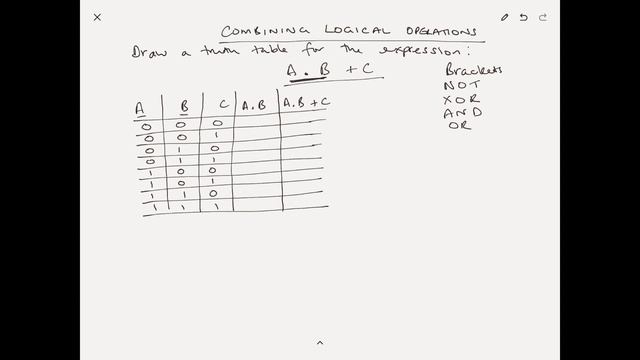 COMBINING LOGICAL OPERATIONS
Draw a truth table for the expression:
A . B + C
Brackets
NOT
XOR
AND
OR
A B C A.B A.B + C
0 0 0
0 0 1
0 1 0
0 1 1
1 0 0
1 0 1
1 1 0
1 1 1